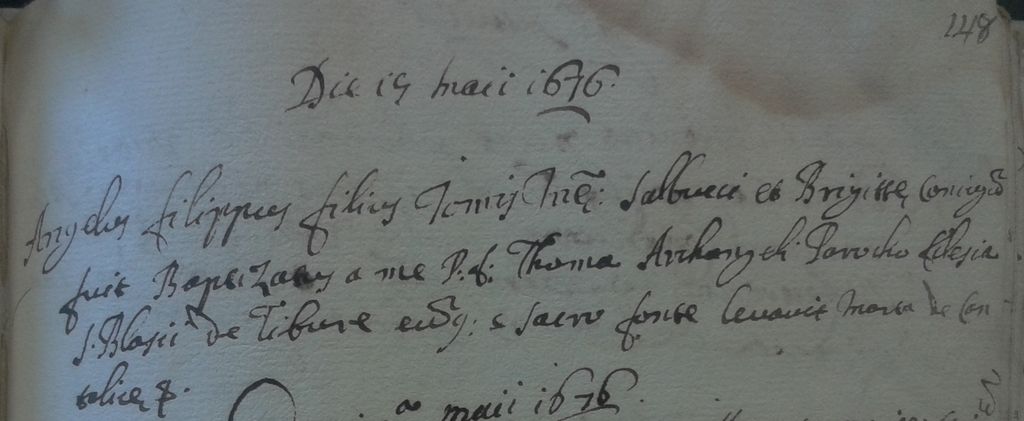 148
Die 15 maii 1676.
Angelus filippus filius Joannis Salbucci et Brigittę Coniugũ
fuit Baptizatus a me P. f. Thoma Archangeli Parocho Eclesia
S. Blasii de Tibure e sacro fonte levavit Marta de Can
talicę
maii 1676.